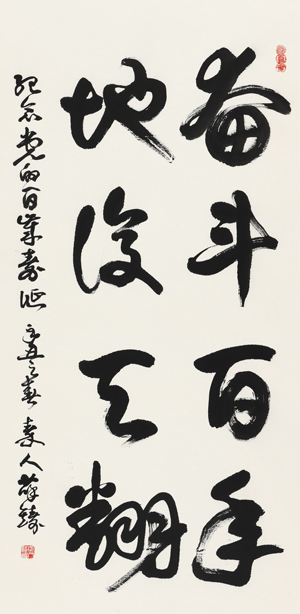 奋斗百年
地覆天翻
纪念党的百岁寿诞 辛丑之春 秦人薛